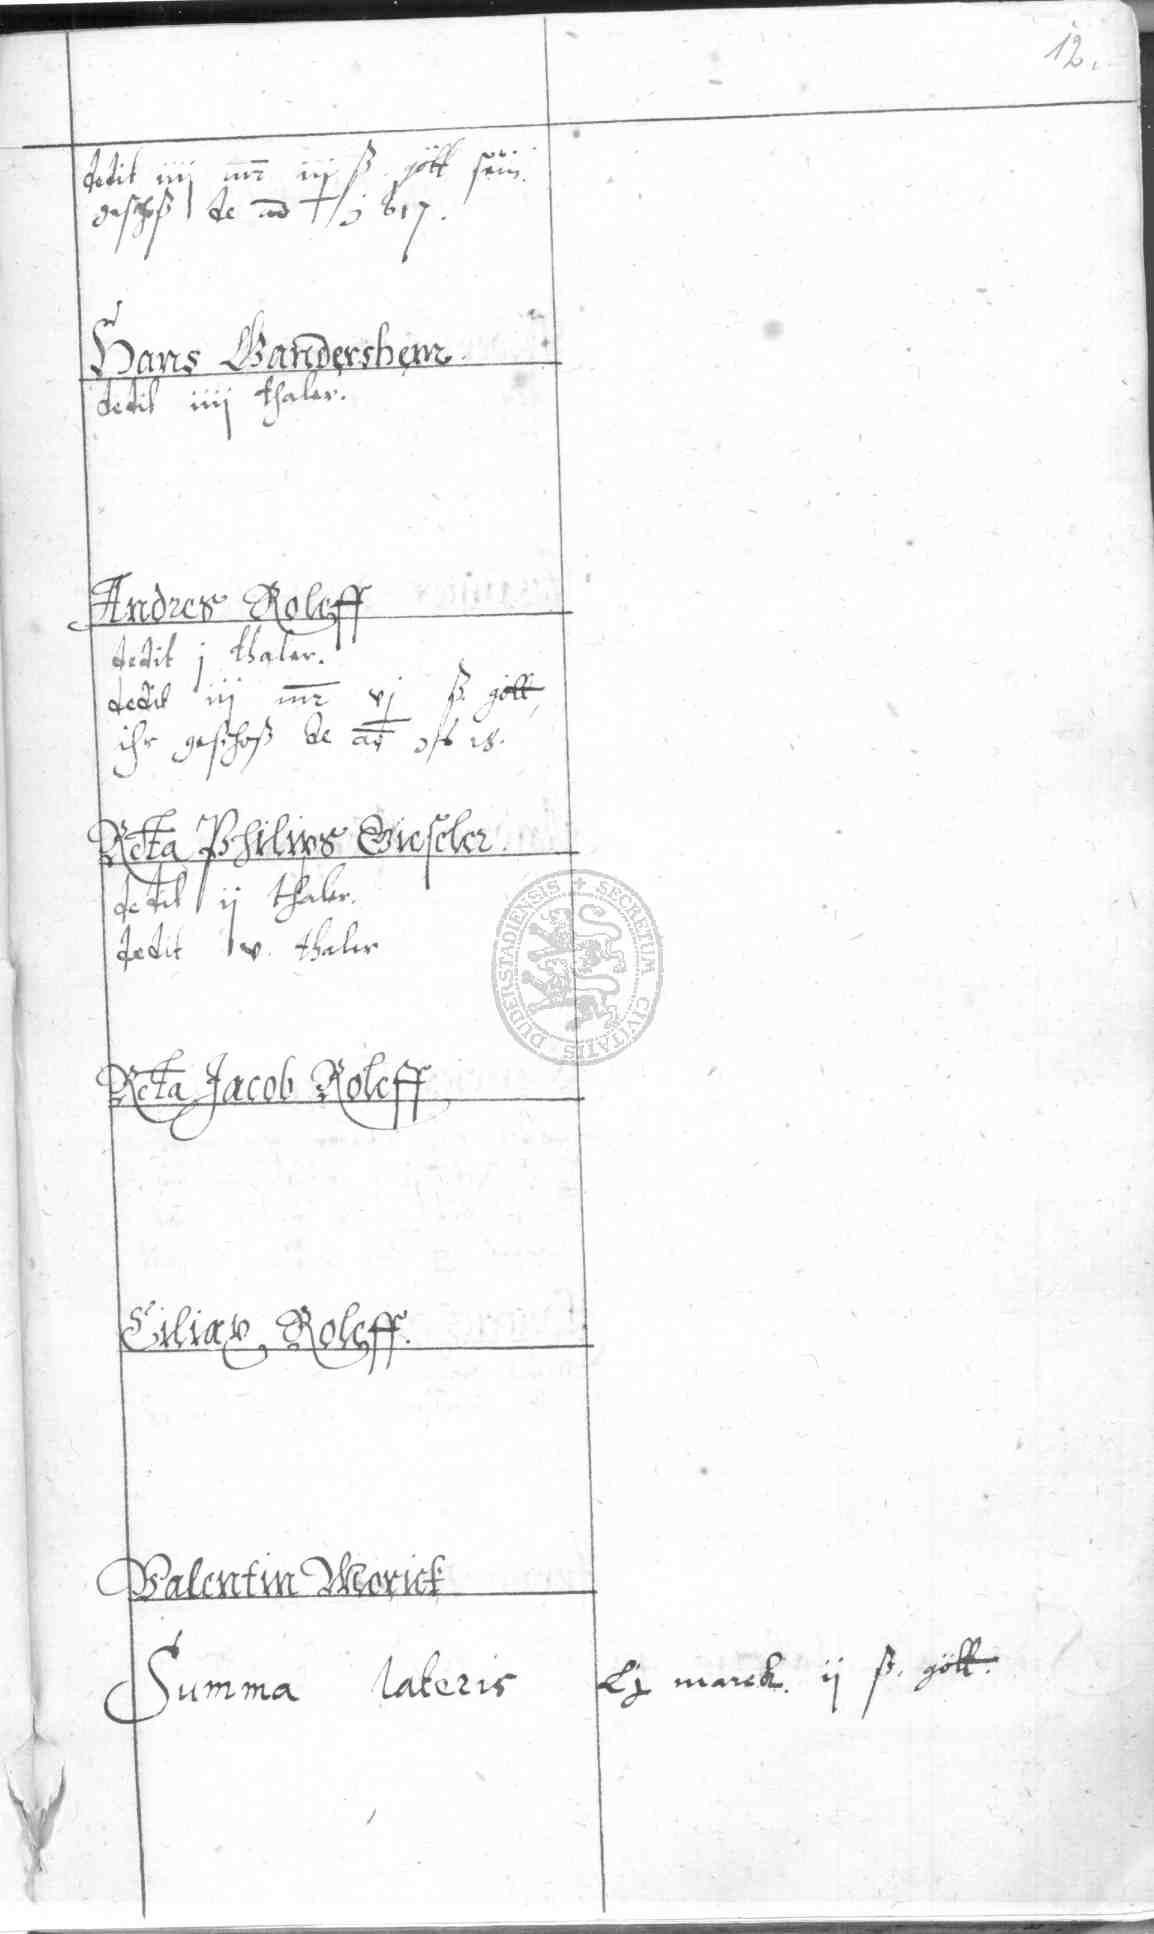 12.
dedit iiij mr iij ß gött sein
geschoß de ao 617.
Hans Gandershem.
dedit iiij thaler.
Andres Roleff
dedit j thaler.
dedit iij mr vj ß. gött
ihr geschoß de ao 618.
Rcta Philips Gieseler.
dedit ij thaler.
dedit v. thaler
Rcta Jacob Roleff
Ciliax Roleff.
Valentin Morick
Summa lateris Lj marck. ij ß. gött.
SECRETUM CIVITATIS DUDERSTADIENSIS